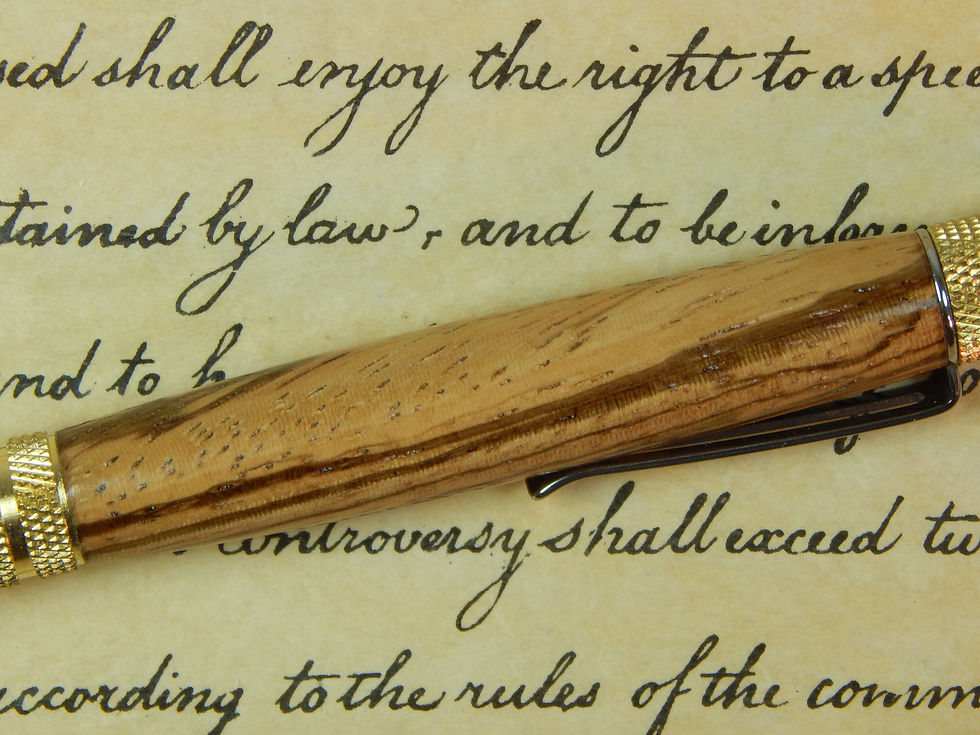 sed shall enjoy the right to a spee
tained by law, and to be infor
nd to h
controversy shall exceed tw
according to the rules of the comm